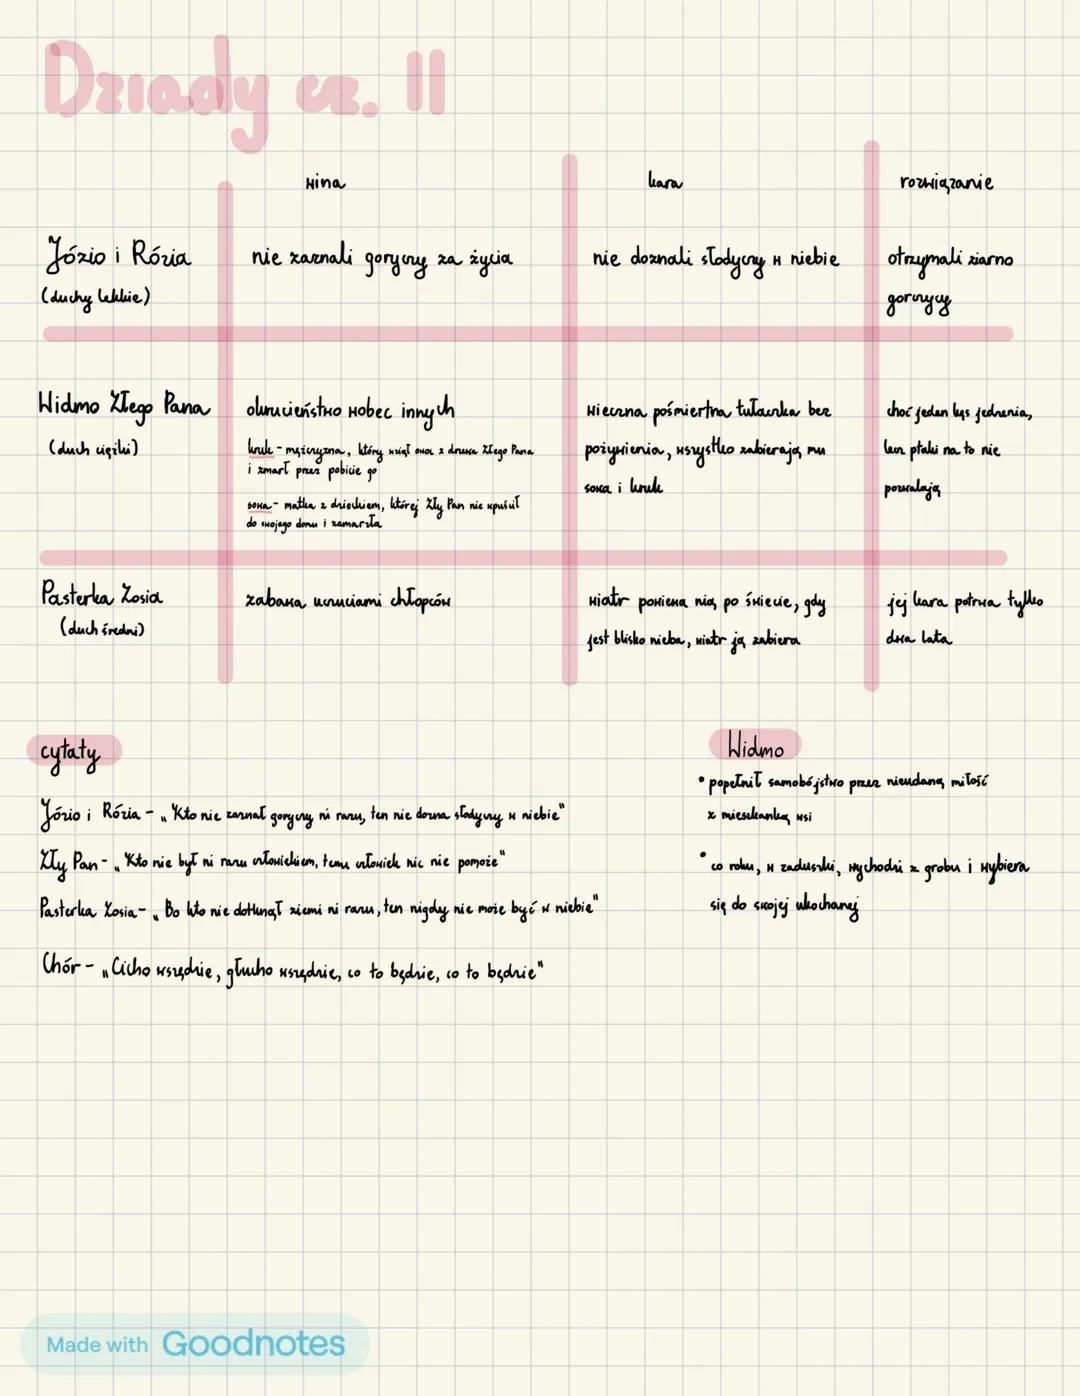 Dziady cz. II
wina
kara
rozwiązanie
Józio i Rózia
(duchy lekkie)
nie zaznali goryczy za życia
nie doznali słodyczy w niebie
otrzymali ziarno
gorczycy
Widmo Złego Pana
(duch ciężki)
okrucieństwo wobec innych
kruk - mężczyzna, który wziął owoc z drzewa Złego Pana
i zmarł przez pobicie go
sowa - matka z dzieckiem, której Zły Pan nie wpuścił
do swojego domu i zamarzła
wieczna pośmiertna tułaczka bez
pożywienia, wszystko zabierają mu
sowa i kruk
choć jeden kęs jedzenia,
lecz ptaki na to nie
pozwalają
Pasterka Zosia
(duch średni)
zabawa uczuciami chłopców
wiatr powiewa nią po świecie, gdy
jest blisko nieba, wiatr ją zabiera
jej kara potrwa tylko
dwa lata
cytaty
Józio i Rózia - „Kto nie zaznał goryczy ni razu, ten nie dozna słodyczy w niebie"
Zły Pan - „Kto nie był ni razu człowiekiem, temu człowiek nic nie pomoże"
Pasterka Zosia - „Bo kto nie dotknął ziemi ni razu, ten nigdy nie może być w niebie"
Chór - „Cicho wszędzie, głucho wszędzie, co to będzie, co to będzie"
Widmo
• popełnił samobójstwo przez nieudaną miłość
z mieszkanką wsi
• co roku, w zaduszki, wychodzi z grobu i wybiera
się do swojej ukochanej
Made with Goodnotes